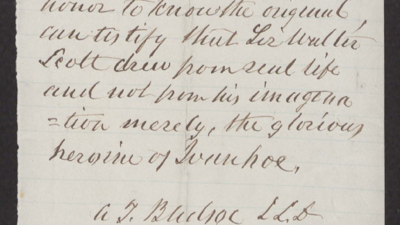 honor to know the original,
can testify that Sir Walter
Scott drew from real life
and not from his imagina
=tion merely, the glorious
heroine of Ivanhoe.
A T. Bledsoe LL.D